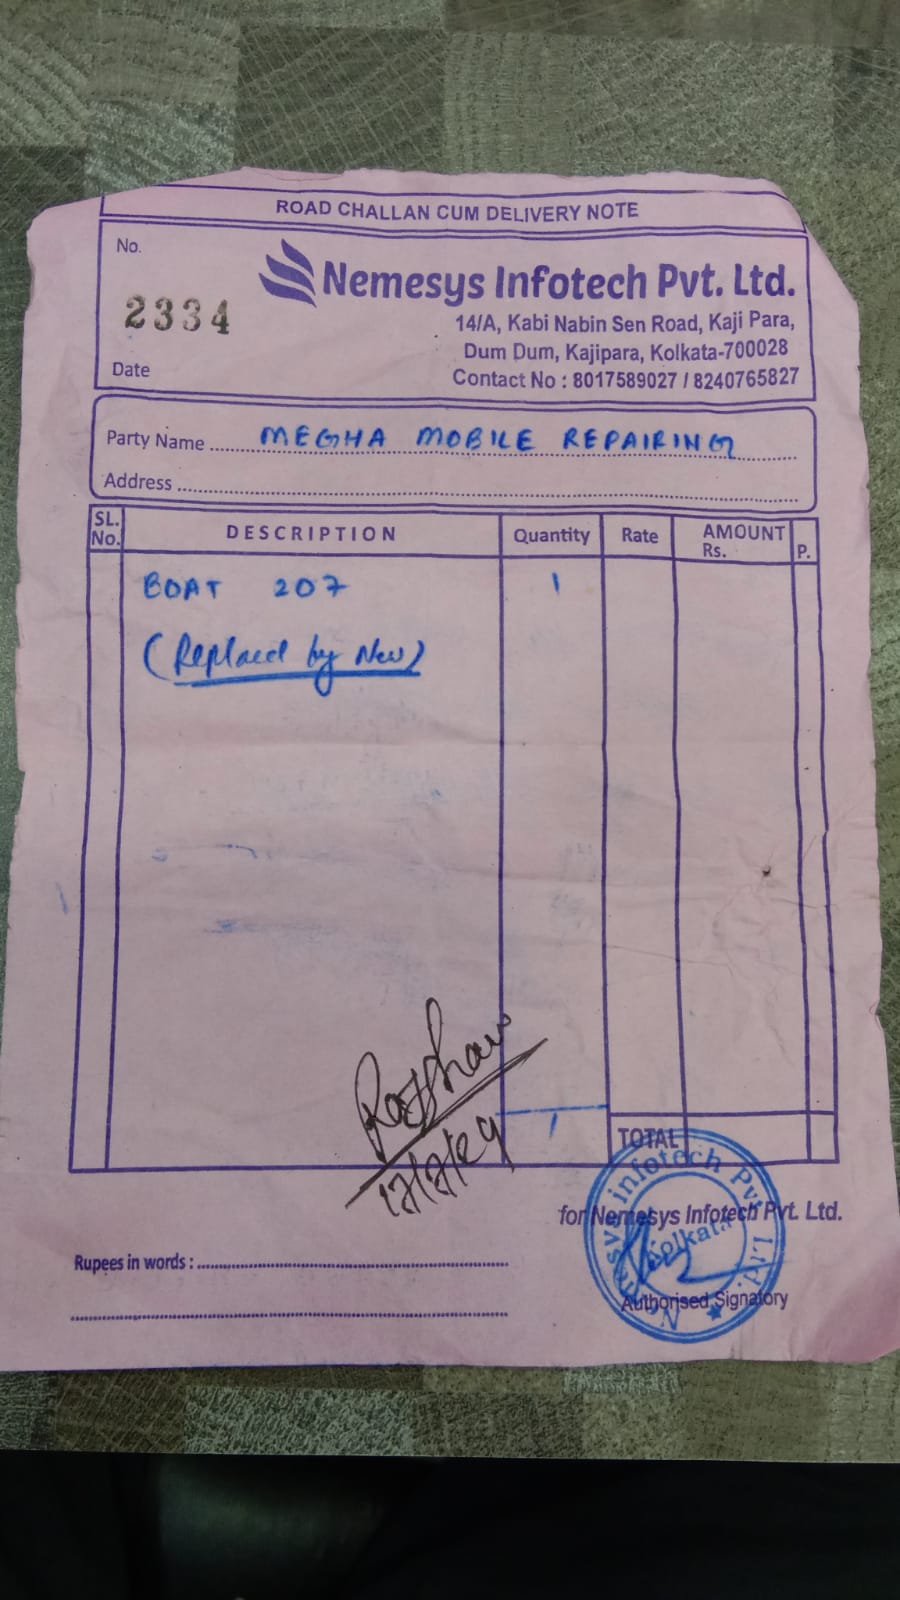 ROAD CHALLAN CUM DELIVERY NOTE
No.
2334
Nemesys Infotech Pvt. Ltd.
14/A, Kabi Nabin Sen Road, Kaji Para,
Dum Dum, Kajipara, Kolkata-700028
Date
Contact No : 8017589027 / 8240765827
Party Name MEGHA MOBILE REPAIRING
Address
SL. No. DESCRIPTION Quantity Rate AMOUNT Rs. P.
BOAT 207 1
(Replaced by New)
1
TOTAL
for Nemesys Infotech Pvt. Ltd.
Nemesys Infotech Pvt. Ltd.
Kolkata
Rupees in words :
Authorised Signatory